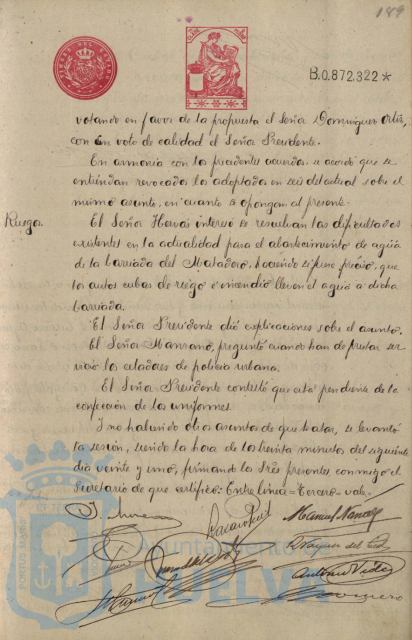 189
B.0.872.322*
votando en favor de la propuesta el Señor Dominguez Ortiz,
con su voto de calidad el Señor Presidente.
En armonia con los precedentes acuerdos se acordó que se
entiendan revocados los adoptados en seis del actual sobre el
mismo asunto, en cuanto se opongan al presente.
Ruego.
El Señor Hervás interesó se resuelvan las dificultades
existentes en la actualidad para el abastecimiento de agua
de la barriada del Matadero, haciendo si fuese preciso, que
los autos cubas de riego e incendio lleven el agua a dicha
barriada.
El Señor Presidente dió explicaciones sobre el asunto.
El Señor Manzano, preguntó cuando han de prestar ser
vicio los celadores de policia urbana.
El Señor Presidente contestó que está pendiente de la
confección de los uniformes.
Y no habiendo otros asuntos de que tratar, se levantó
la sesión, siendo la hora de los treinta minutos del siguiente
dia veinte y uno, firmando los Sres presentes conmigo el
Secretario de que certifico: Entre linea = Tercero = vale.
Manuel
Antonio
Ayuntamiento de
HUELVA